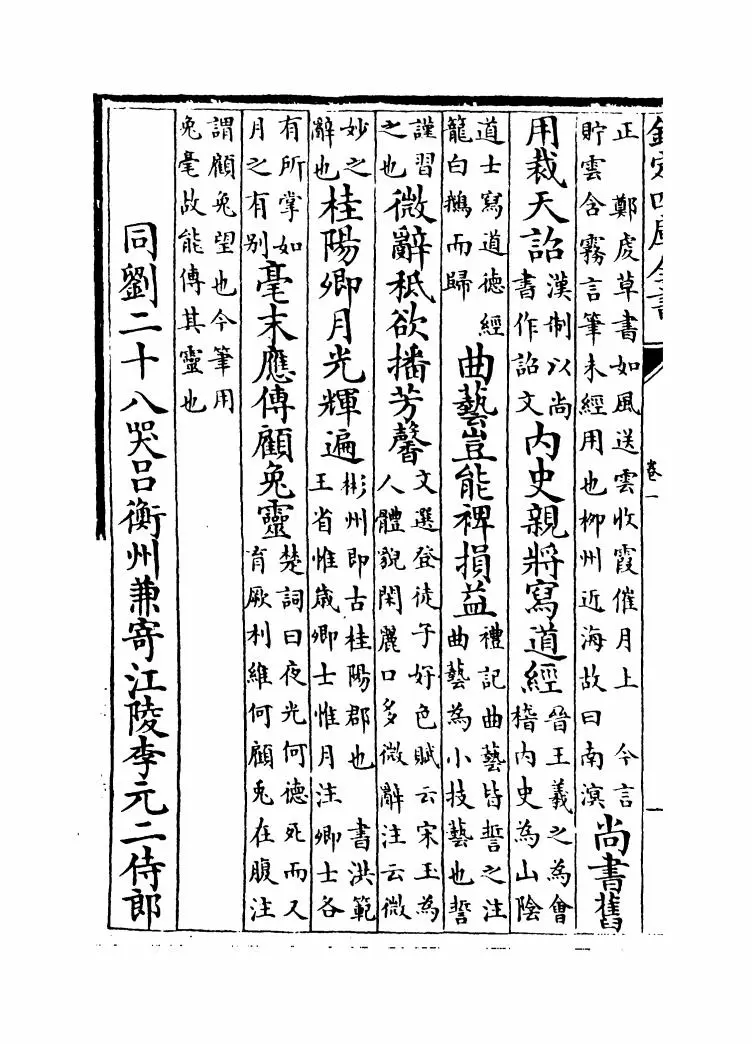 欽定四庫全書
卷一
一
正 鄭虔草書如風送雲收霞催月上 今言
貯雲含霧言筆未經用也柳州近海故曰南溟
尚書舊
用裁天詔
漢制以尚
書作詔文
内史親將寫道經
晉王羲之為會
稽内史為山陰
道士寫道德經
籠白鵝而歸
曲藝豈能裨損益
禮記曲藝皆誓之注
曲藝為小技藝也誓
謹習
之也
微辭秪欲播芳馨
文選登徒子好色賦云宋玉為
人體貌閑麗口多微辭注云微
妙之
辭也
桂陽卿月光輝遍
彬州即古桂陽郡也 書洪範
王省惟歲卿士惟月注卿士各
有所掌如
月之有别
毫末應傳顧兔靈
楚詞曰夜光何德死而又
育厥利維何顧兔在腹注
謂顧兔望也今筆用
兔毫故能傳其靈也
同劉二十八哭吕衡州兼寄江陵李元二侍郎